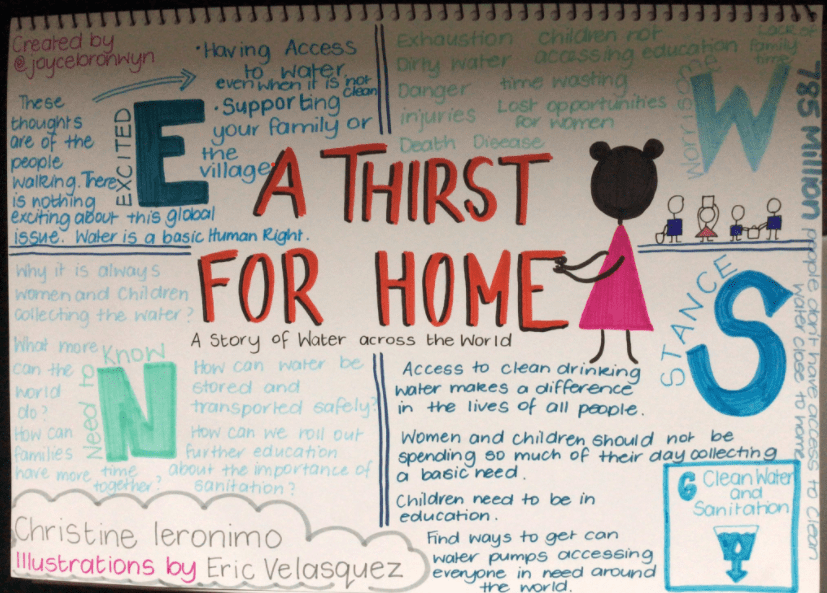 Created by
@joycebronwyn
These
thoughts
are of the
people
walking. There
is nothing
exciting about this global
issue. Water is a basic Human Right.
EXCITED
E
•Having Access
to water,
even when it is not
clean
•Supporting
your family or
the
village
Exhaustion children not
Dirty water accessing education
Lack of
family
time
Danger time wasting
injuries Lost opportunities
for women
Death Disease
Worrisome
W
785 Million people don't have access to clean
water close to home
A THIRST
FOR HOME
A Story of Water across the World
Why it is always
women and children
collecting the water?
What more
can the
world
do?
How can
families
have more time
together?
Need to Know
N
How can water be
stored and
transported safely?
How can we roll out
further education
about the importance of
sanitation?
STANCE
S
Access to clean drinking
water makes a difference
in the lives of all people.
Women and children should not be
spending so much of their day collecting
a basic need.
Children need to be in
education.
Find ways to get can
water pumps accessing
everyone in need around
the world.
6 Clean Water
and
Sanitation
Christine Ieronimo
Illustrations by Eric Velasquez